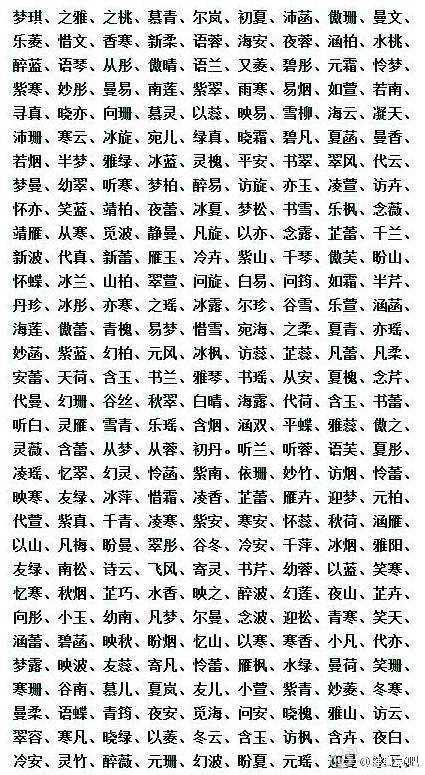 梦琪、之雅、之桃、慕青、尔岚、初夏、沛菡、傲珊、曼文、
乐菱、惜文、香寒、新柔、语蓉、海安、夜蓉、涵柏、水桃、
醉蓝、语琴、从彤、傲晴、语兰、又菱、碧彤、元霜、怜梦、
紫寒、妙彤、曼易、南莲、紫翠、雨寒、易烟、如萱、若南、
寻真、晓亦、向珊、慕灵、以蕊、映易、雪柳、海云、凝天、
沛珊、寒云、冰旋、宛儿、绿真、晓霜、碧凡、夏菡、曼香、
若烟、半梦、雅绿、冰蓝、灵槐、平安、书翠、翠风、代云、
梦曼、幼翠、听寒、梦柏、醉易、访旋、亦玉、凌萱、访卉、
怀亦、笑蓝、靖柏、夜蕾、冰夏、梦松、书雪、乐枫、念薇、
靖雁、从寒、觅波、静曼、凡旋、以亦、念露、芷蕾、千兰、
新波、代真、新蕾、雁玉、冷卉、紫山、千琴、傲芙、盼山、
怀蝶、冰兰、山柏、翠萱、问旋、白易、问筠、如霜、半芹、
丹珍、冰彤、亦寒、之瑶、冰露、尔珍、谷雪、乐萱、涵菡、
海莲、傲蕾、青槐、易梦、惜雪、宛海、之柔、夏青、亦瑶、
妙菡、紫蓝、幻柏、元风、冰枫、访蕊、芷蕊、凡蕾、凡柔、
安蕾、天荷、含玉、书兰、雅琴、书瑶、从安、夏槐、念芹、
代曼、幻珊、谷丝、秋翠、白晴、海露、代荷、含玉、书蕾、
听白、灵雁、雪青、乐瑶、含烟、涵双、平蝶、雅蕊、傲之、
灵薇、含蕾、从梦、从蓉、初丹。听兰、听蓉、语芙、夏彤、
凌瑶、忆翠、幻灵、怜菡、紫南、依珊、妙竹、访烟、怜蕾、
映寒、友绿、冰萍、惜霜、凌香、芷蕾、雁卉、迎梦、元柏、
代萱、紫真、千青、凌寒、紫安、寒安、怀蕊、秋荷、涵雁、
以山、凡梅、盼曼、翠彤、谷冬、冷安、千萍、冰烟、雅阳、
友绿、南松、诗云、飞风、寄灵、书芹、幼蓉、以蓝、笑寒、
忆寒、秋烟、芷巧、水香、映之、醉波、幻莲、夜山、芷卉、
向彤、小玉、幼南、凡梦、尔曼、念波、迎松、青寒、笑天、
涵蕾、碧菡、映秋、盼烟、忆山、以寒、寒香、小凡、代亦、
梦露、映波、友蕊、寄凡、怜蕾、雁枫、水绿、曼荷、笑珊、
寒珊、谷南、慕儿、夏岚、友儿、小萱、紫青、妙菱、冬寒、
曼柔、语蝶、青筠、夜安、觅海、问安、晓槐、雅山、访云、
翠容、寒凡、晓绿、以菱、冬云、含玉、访枫、含卉、夜白、
冷安、灵竹、醉薇、元珊、幻波、盼夏、元瑶、迎曼、